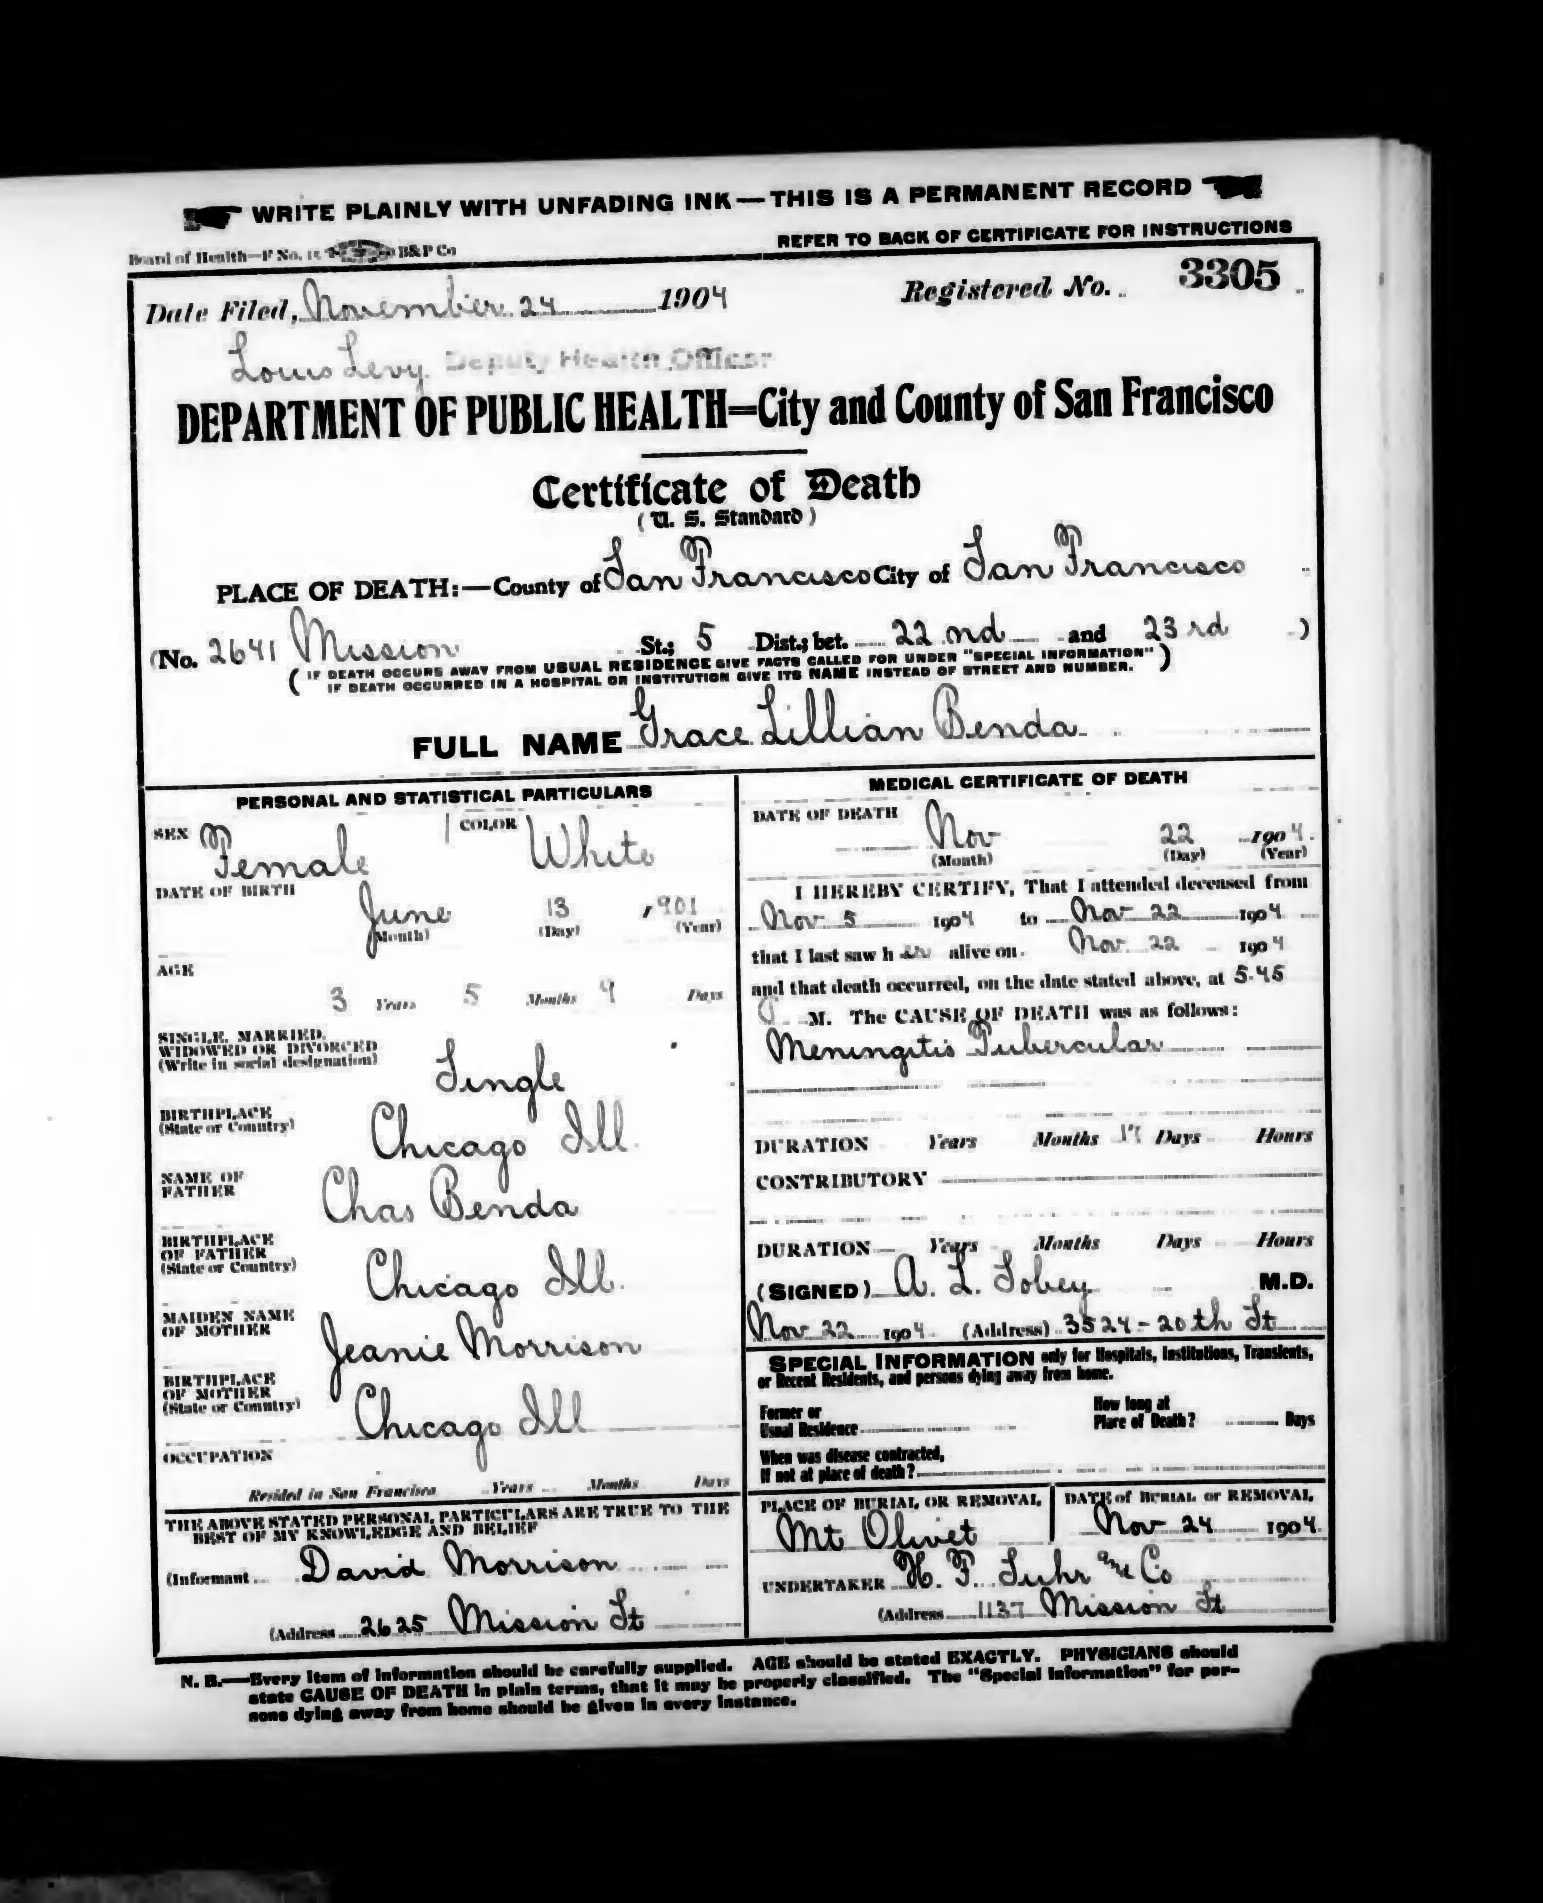 WRITE PLAINLY WITH UNFADING INK — THIS IS A PERMANENT RECORD
Board of Health—F No. 15 B&P Co
REFER TO BACK OF CERTIFICATE FOR INSTRUCTIONS
Date Filed, November 24 1904 Registered No. 3305
Louis Levy Deputy Health Officer
DEPARTMENT OF PUBLIC HEALTH=City and County of San Francisco
Certificate of Death
(U. S. Standard)
PLACE OF DEATH:—County of San Francisco City of San Francisco
(No. 2641 Mission St.; 5 Dist.; bet. 22 nd and 23 rd )
( IF DEATH OCCURS AWAY FROM USUAL RESIDENCE GIVE FACTS CALLED FOR UNDER "SPECIAL INFORMATION" )
IF DEATH OCCURRED IN A HOSPITAL OR INSTITUTION GIVE ITS NAME INSTEAD OF STREET AND NUMBER.
FULL NAME Grace Lillian Benda
PERSONAL AND STATISTICAL PARTICULARS
SEX Female COLOR White
DATE OF BIRTH
June 13 , 901
(Month) (Day) (Year)
AGE
3 Years 5 Months 9 Days
SINGLE, MARRIED,
WIDOWED OR DIVORCED
(Write in social designation) Single
BIRTHPLACE
(State or Country) Chicago Ill.
NAME OF
FATHER Chas Benda
BIRTHPLACE
OF FATHER
(State or Country) Chicago Ill.
MAIDEN NAME
OF MOTHER Jeanie Morrison
BIRTHPLACE
OF MOTHER
(State or Country) Chicago Ill
OCCUPATION
Resided in San Francisco Years Months Days
THE ABOVE STATED PERSONAL PARTICULARS ARE TRUE TO THE
BEST OF MY KNOWLEDGE AND BELIEF
(Informant David Morrison
(Address 2625 Mission St
MEDICAL CERTIFICATE OF DEATH
DATE OF DEATH
Nov 22 1904.
(Month) (Day) (Year)
I HEREBY CERTIFY, That I attended deceased from
Nov 5 1904 to Nov 22 1904
that I last saw h er alive on Nov. 22 1904
and that death occurred, on the date stated above, at 5.45
P. M. The CAUSE OF DEATH was as follows:
Meningitis Tubercular
DURATION Years Months 17 Days Hours
CONTRIBUTORY
DURATION Years Months Days Hours
(SIGNED) A. L. Tobey M.D.
Nov 22 1904 (Address) 3524-20th St
SPECIAL INFORMATION only for Hospitals, Institutions, Transients,
or Recent Residents, and persons dying away from home.
Former or
Usual Residence
How long at
Place of Death? Days
When was disease contracted,
If not at place of death?
PLACE OF BURIAL OR REMOVAL
Mt Olivet
DATE of BURIAL or REMOVAL
Nov 24 1904
UNDERTAKER H. F. Suhr and Co
(Address 1137 Mission St
N. B.—Every item of information should be carefully supplied. AGE should be stated EXACTLY. PHYSICIANS should
state CAUSE OF DEATH in plain terms, that it may be properly classified. The "Special Information" for per-
sons dying away from home should be given in every instance.